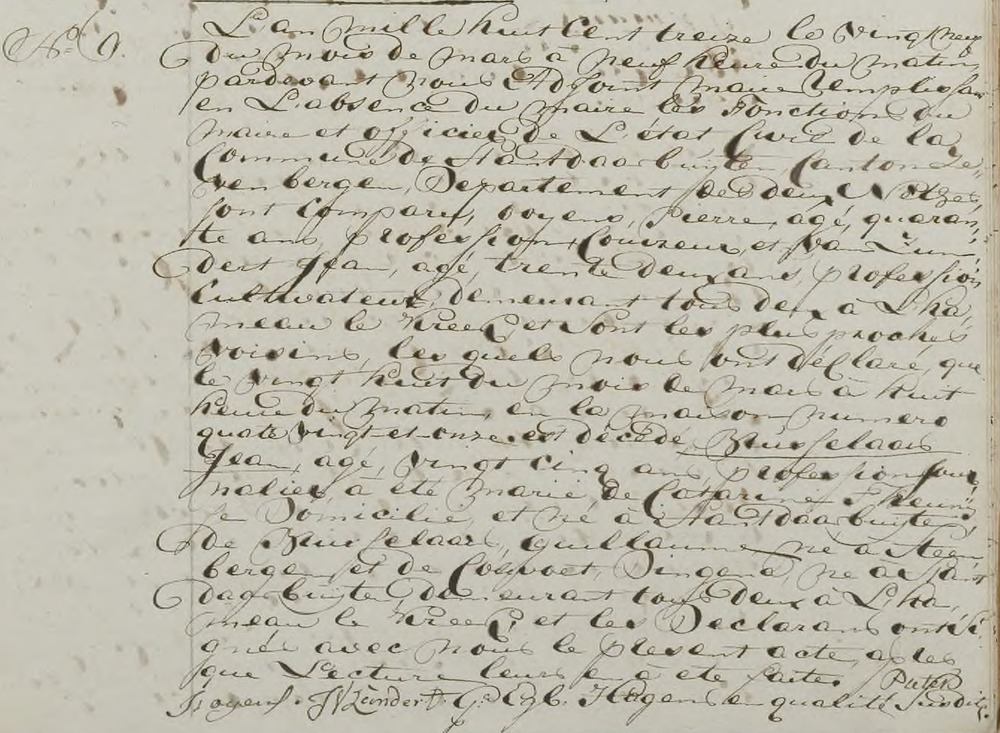 N° 9.
L'an mille huit Cent treize le vingt neuf
du mois de mars à neuf heure du matin
pardevant nous Adjoint maire remplissant
en L'absence du maire les Fonctions du
maire et officier de L'état Civil de la
Commune de Standdaarbuiten, Canton Ze-
venbergen, Departement des deux Nethes
sont Comparus, Goyens, Pierre, agé, quaran,
te ans, profession, et van Zun,
dert Jean, agé, trente deux ans, profession
Cultivateur, demeurant tous deux à L'ha,
meau le Kreek, et sont les plus proches
voisins, les quels nous ont déclaré, que
le vingt huit du mois de mars à huit
heure du matin, en la maison numero
quatre vingt et onze, est décédé, Brusselaars
Jean, agé, vingt cinq ans, profession jour,
nalier, à été marié, de Catarine Theunis,
se Domicilié, et né à Standdaarbuiten
De Brusselaars, Guillaume, né à Steen
bergen et de Dingena, né à Stand
daarbuiten, demeurant tous deux à L'ha,
meau le Kreek, et les Declarans ont si
gnés avec nous le present acte, après
que Lecture leurs en à été faite. Pieter
Goyens. J V Zundert. G: Hagens en qualité Susdit.